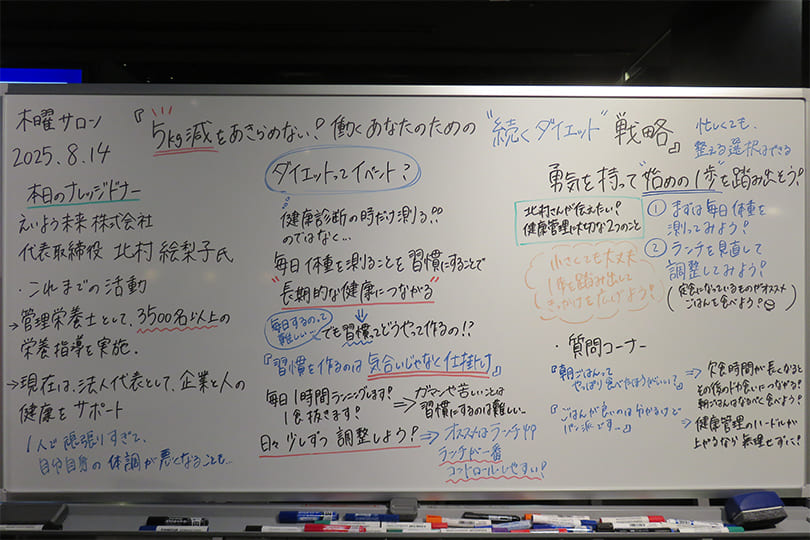 木曜サロン
2025.8.14
『5kg減をあきらめない!働くあなたのための"続くダイエット"戦略』
本日のナレッジドナー
えいよう未来株式会社
代表取締役 北村 絵梨子氏
・これまでの活動
→管理栄養士として、3500名以上の
栄養指導を実施。
→現在は、法人代表として、企業と人の
健康をサポート
1人で頑張りすぎて、
自分自身の体調が悪くなることも…
ダイエットってイベント?
健康診断の時だけ測る!!
のではなく…
毎日体重を測ることを習慣にすることで
"長期的な健康につながる"
毎日するのって
難しい…
でも習慣ってどうやって作るの!?
『習慣を作るのは気合いじゃなく仕掛け』
毎日1時間ランニングします!
1食抜きます!
⇒ガマンや苦しいことは
習慣にするのは難しい…
日々少しずつ調整しよう!
⇒オススメはランチ!!
ランチが一番
コントロールしやすい!
忙しくても、
整える選択はできる
勇気を持って"始めの1歩"を踏み出そう!
北村さんが伝えたい!
健康管理に大切な2つのこと
① まずは毎日体重を
測ってみよう!
② ランチを見直して
調整してみよう!
(定食になっているものやオススメ
ごはんを食べよう!)
小さくても大丈夫
1歩を踏み出して
きっかけを広げよう!
・質問コーナー
『朝ごはんって
やっぱり食べたほうがいい?』
⇒欠食時間が長くなると
その後のドカ食いにつながる!
朝ごはんはなるべく食べよう!
『ごはんが良いのは分かるけど
パン派です…』
⇒健康管理のハードルが
上がるなら無理せずに!